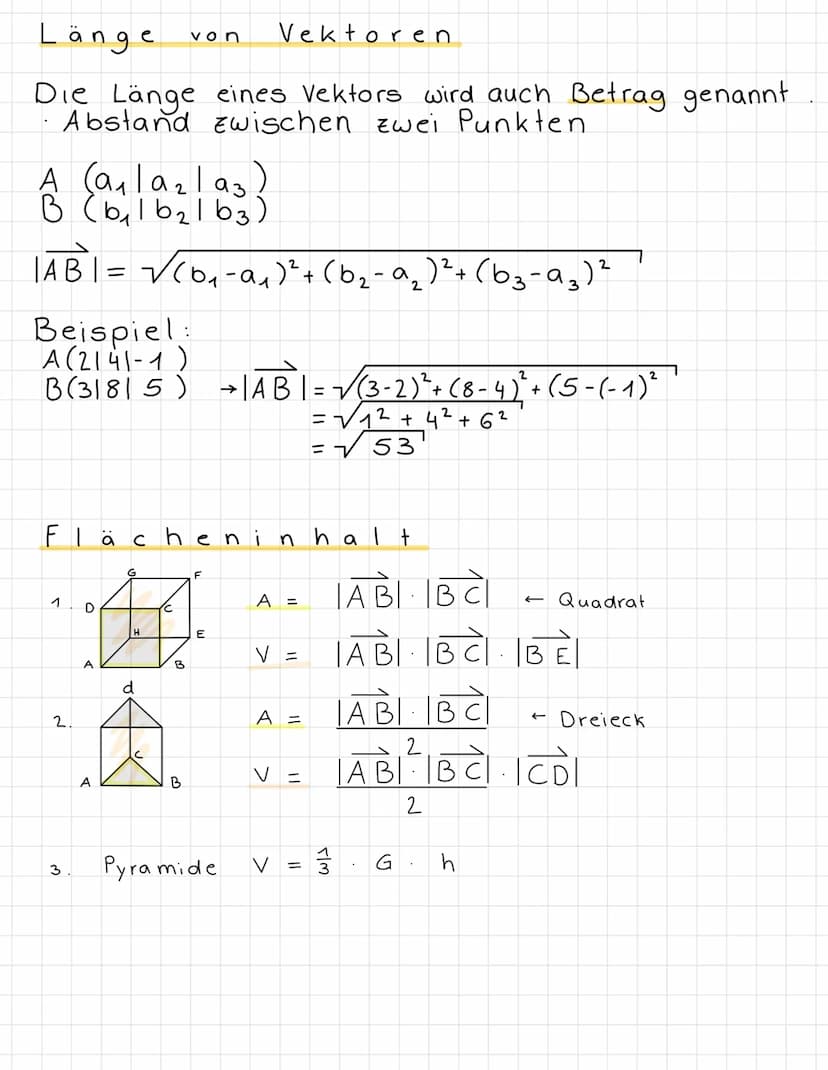 Länge von Vektoren
Die Länge eines Vektors wird auch Betrag genannt.
· Abstand zwischen zwei Punkten
A (a₁|a₂|a₃)
B (b₁|b₂|b₃)
|A⃗B⃗| = √(b₁-a₁)²+(b₂-a₂)²+(b₃-a₃)²
Beispiel:
A(2|4|-1)
B(3|8|5) →|A⃗B⃗| = √(3-2)²+(8-4)²+(5-(-1)²
= √1² + 4² + 6²
= √53
Flächeninhalt
G F
1. D C A = |A⃗B⃗| · |B⃗C⃗| ← Quadrat
H E
A B V = |A⃗B⃗| · |B⃗C⃗| · |B⃗E⃗|
d
2. A = |A⃗B⃗| · |B⃗C⃗| / 2 ← Dreieck
C
A B V = |A⃗B⃗| · |B⃗C⃗| / 2 · |C⃗D⃗|
3. Pyramide V = 1/3 · G · h